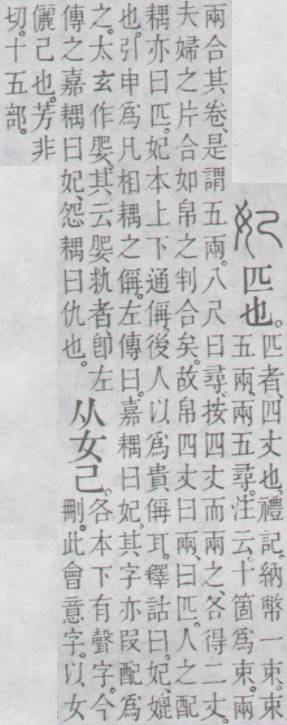 妃
匹也。
匹者、四丈也。禮記、納幣一束。束
五兩、兩五尋。注云、十箇爲束。兩
兩合其卷、是謂五兩。八尺曰尋。按四丈而兩之、各得二丈。
夫婦之片合如帛之判合矣。故帛四丈曰兩、曰匹。人之配
耦亦曰匹。妃本上下通偁、後人以爲貴偁耳。釋詁曰。妃、媲
也。引申爲凡相耦之偁。左傳曰。嘉耦曰妃。其字亦叚配爲
之。太玄作、其云執者、卽左
傳之嘉耦曰妃、怨耦曰仇也。
从女己。
各本下有聲字。今
刪。此會意字。以女
儷己也。芳非
切。十五部。